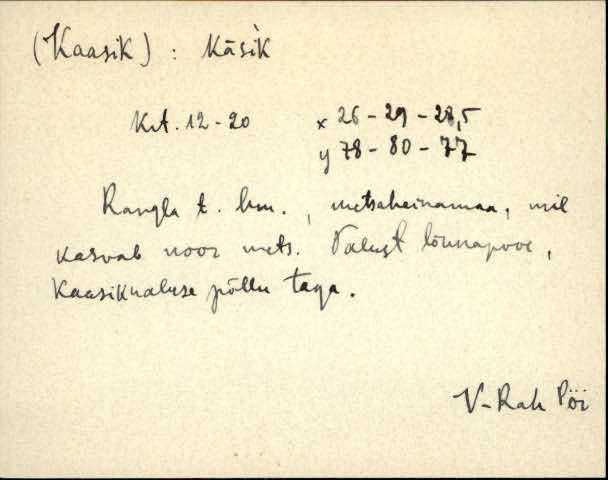 (Kaasik) : kāsik
Krt. 12-20 x 26 - 29 - 28,5
y 78 - 80 - 77
Rangla t. hm., metsaheinamaa, mil
kasvab noor mets. Talust lõunapool,
Kaasikualuse põllu taga.
V-Rah Pöi